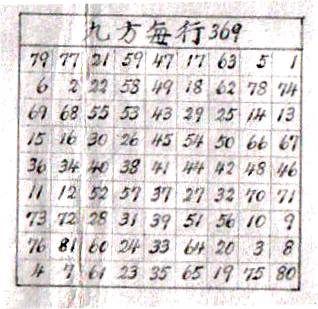 九方每行369
79 77 21 59 47 17 63 5 1
6 2 22 58 49 18 62 78 74
69 68 55 53 43 29 25 14 13
15 16 30 26 45 54 50 66 67
36 34 40 38 41 44 42 48 46
11 12 52 57 37 27 32 70 71
73 72 28 31 39 51 56 10 9
76 81 60 24 33 64 20 3 8
4 7 61 23 35 65 19 75 80